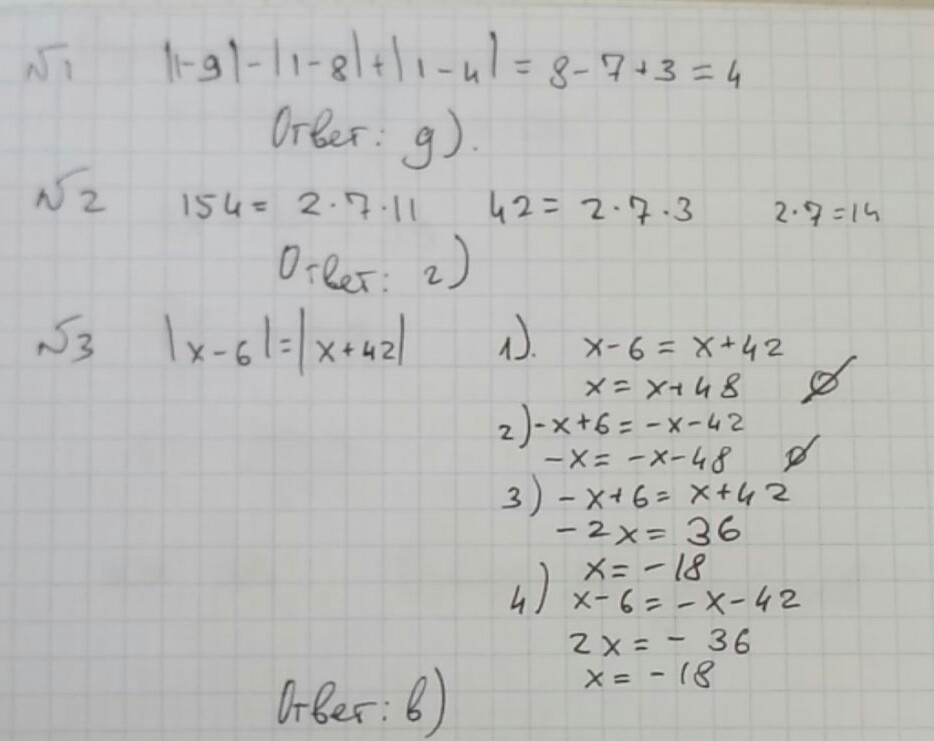 №1 |1-9|-|1-8|+|1-4| = 8-7+3=4
Ответ: д).
№2 154= 2·7·11 42= 2·7·3 2·7=14
Ответ: г)
№3 |x-6|=|x+42| 1). x-6 = x+42
x= x+48 ∅
2) -x+6= -x-42
-x= -x-48 ∅
3) -x+6= x+42
-2x= 36
x= -18
4) x-6= -x-42
2x= - 36
x= -18
Ответ: в)